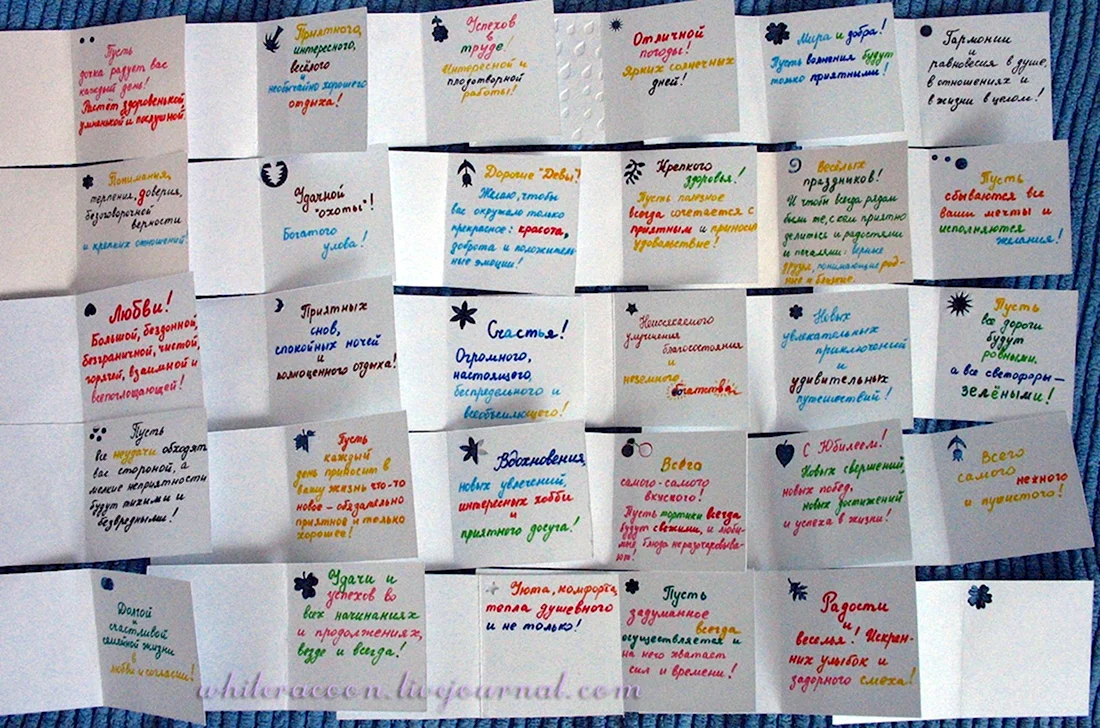 Пусть
дочка радует вас
каждый день!
Растёт здоровенькой
умненькой и послушной.
Приятного,
интересного,
весёлого
и
необычайно хорошего
отдыха!
Успехов
в
труде!
Интересной и
плодотворной
работы!
Отличной
погоды!
Ярких солнечных
дней!
Мира и добра!
Пусть волнения будут
только приятными!
Гармонии
и
равновесия в душе,
в отношениях и
в жизни в целом!
Понимания,
терпения, доверия,
безоговорочной
верности
и крепких отношений!
Удачной
"охоты"!
Богатого
улова!
Дорогие "Девы"!
Желаю, чтобы
вас окружало только
прекрасное: красота,
доброта и положитель-
ные эмоции!
Крепкого
здоровья!
Пусть полезное
всегда сочетается с
приятным и приносит
удовольствие!
Весёлых
праздников!
И чтобы всегда рядом
были те, с кем приятно
делиться и радостями
и печалями: верные
друзья, понимающие род-
ные и близкие.
Пусть
сбываются все
ваши мечты и
исполняются
желания!
Любви!
Большой, бездонной,
безграничной, чистой,
горячей, взаимной и
всепоглощающей!
Приятных
снов,
спокойных ночей
и
полноценного отдыха!
Счастья!
Огромного,
настоящего,
беспредельного и
всеобъемлющего!
Неиссякаемого
улучшения
благосостояния
и
неземного
богатства
Новых
увлекательных
приключений
и
удивительных
путешествий!
Пусть
все дороги
будут
ровными,
а все светофоры—
зелёными!
Пусть
все неудачи обходят
вас стороной, а
мелкие неприятности
будут тихими и
безвредными!
Пусть
каждый
день приносит в
вашу жизнь что-то
новое – обязательно
приятное и только
хорошее!
Вдохновения,
новых увлечений,
интересных хобби
и
приятного досуга!
Всего
самого-самого
вкусного!
Пусть тортики всегда
будут свежими, и люби-
мые блюда не разочаровыва-
ют!
С Юбилеем!
Новых свершений,
новых побед,
новых достижений
и успеха в жизни!
Всего
самого
нежного
и пушистого!
Долгой
и
счастливой
семейной жизни
в
любви и согласии!
Удачи и
успехов во
всех начинаниях
и продолжениях,
везде и всегда!
Уюта, комфорта,
тепла душевного
и не только!
Пусть
задуманное
всегда
осуществляется и
на него хватает
сил и времени!
Радости
и
веселья! Искрен-
них улыбок и
задорного смеха!
whiteracoon.livejournal.com